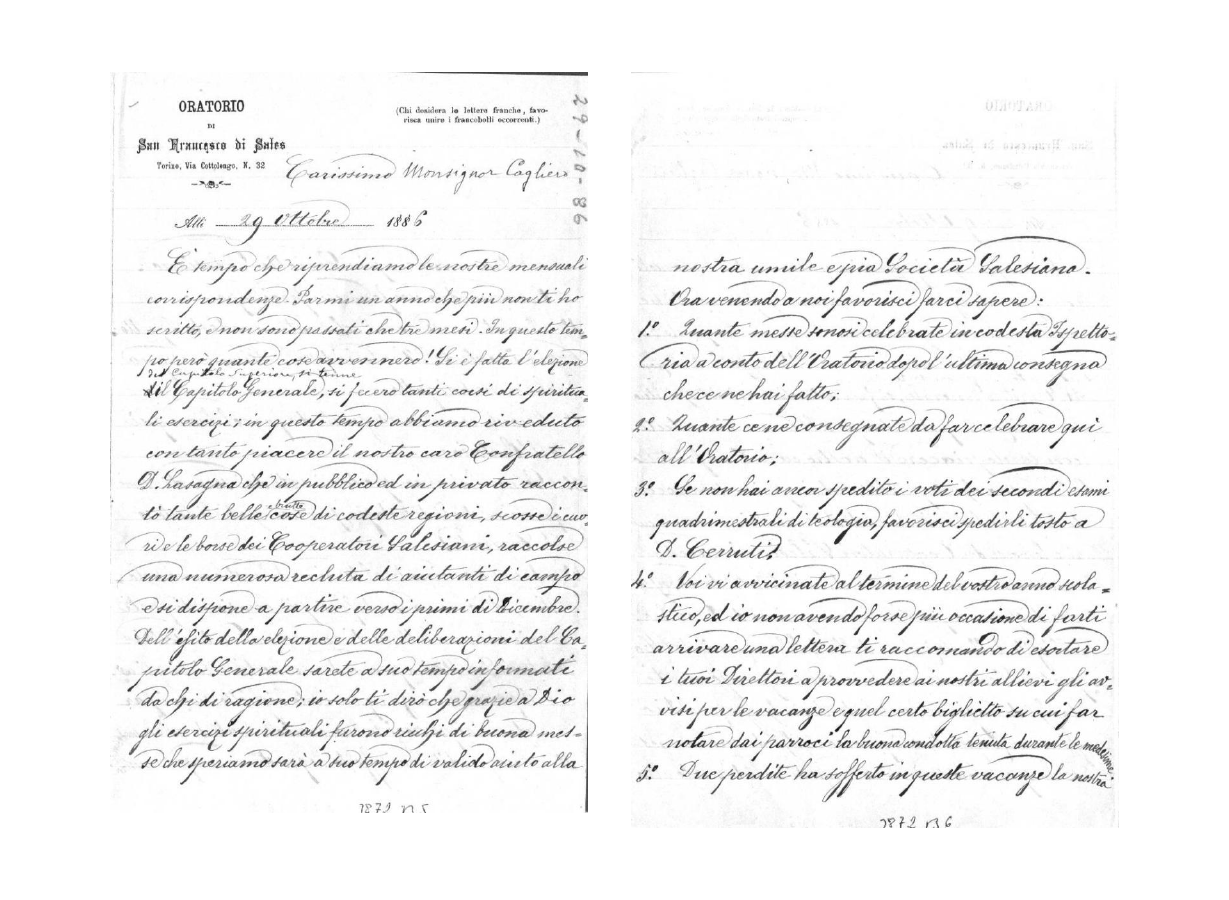 ORATORIO
DI
San Francesco di Sales
Torino, Via Cottolengo, N. 32
(Chi desidera le lettere franche, favo-
risca unire i francobolli occorrenti.)
29-10-86
Carissimo Monsignor Cagliero
Alli 29 Ottobre 1886
È tempo che riprendiamo le nostre mensuali
corrispondenze. Parmi un anno che più non ti ho
scritto, e non sono passati che tre mesi. In questo tem-
po però quante cose avvennero! Si è fatta l'elezione
del Capitolo Superiore, si tenne
il Capitolo Generale, si fecero tanti corsi di spiritua-
li esercizi; in questo tempo abbiamo riveduto
con tanto piacere il nostro caro Confratello
D. Lasagna che in pubblico ed in privato raccon-
tò tante belle e brutte cose di codeste regioni, scosse i cuo-
ri e le borse dei Cooperatori Salesiani, raccolse
una numerosa recluta di aiutanti di campo
e si dispone a partire verso i primi di Dicembre.
Dell'esito della elezione e delle deliberazioni del Ca-
pitolo Generale sarete a suo tempo informati
da chi di ragione; io solo ti dirò che grazie a Dio
gli esercizi spirituali furono ricchi di buona mes-
se che speriamo sarà a suo tempo di valido aiuto alla
2872 B 5
nostra umile e pia Società Salesiana.
Ora venendo a noi favorisci farci sapere:
1.° Quante messe sonosi celebrate in codesta Ispetto-
ria a conto dell'Oratorio dopo l'ultima consegna
che ce ne hai fatto;
2.° Quante ce ne consegnate da far celebrare qui
all'Oratorio;
3.° Se non hai ancor spedito i voti dei secondi esami
quadrimestrali di teologia, favorisci spedirli tosto a
D. Cerruti;
4.° Voi vi avvicinate al termine del vostro anno scola-
stico, ed io non avendo forse più occasione di farti
arrivare una lettera ti raccomando di esortare
i tuoi Direttori a provvedere ai nostri allievi gli av-
visi per le vacanze e quel certo biglietto su cui far
notare dai parroci la buona condotta tenuta durante le medesime.
5.° Due perdite ha sofferto in queste vacanze la nostra
2872 B 6